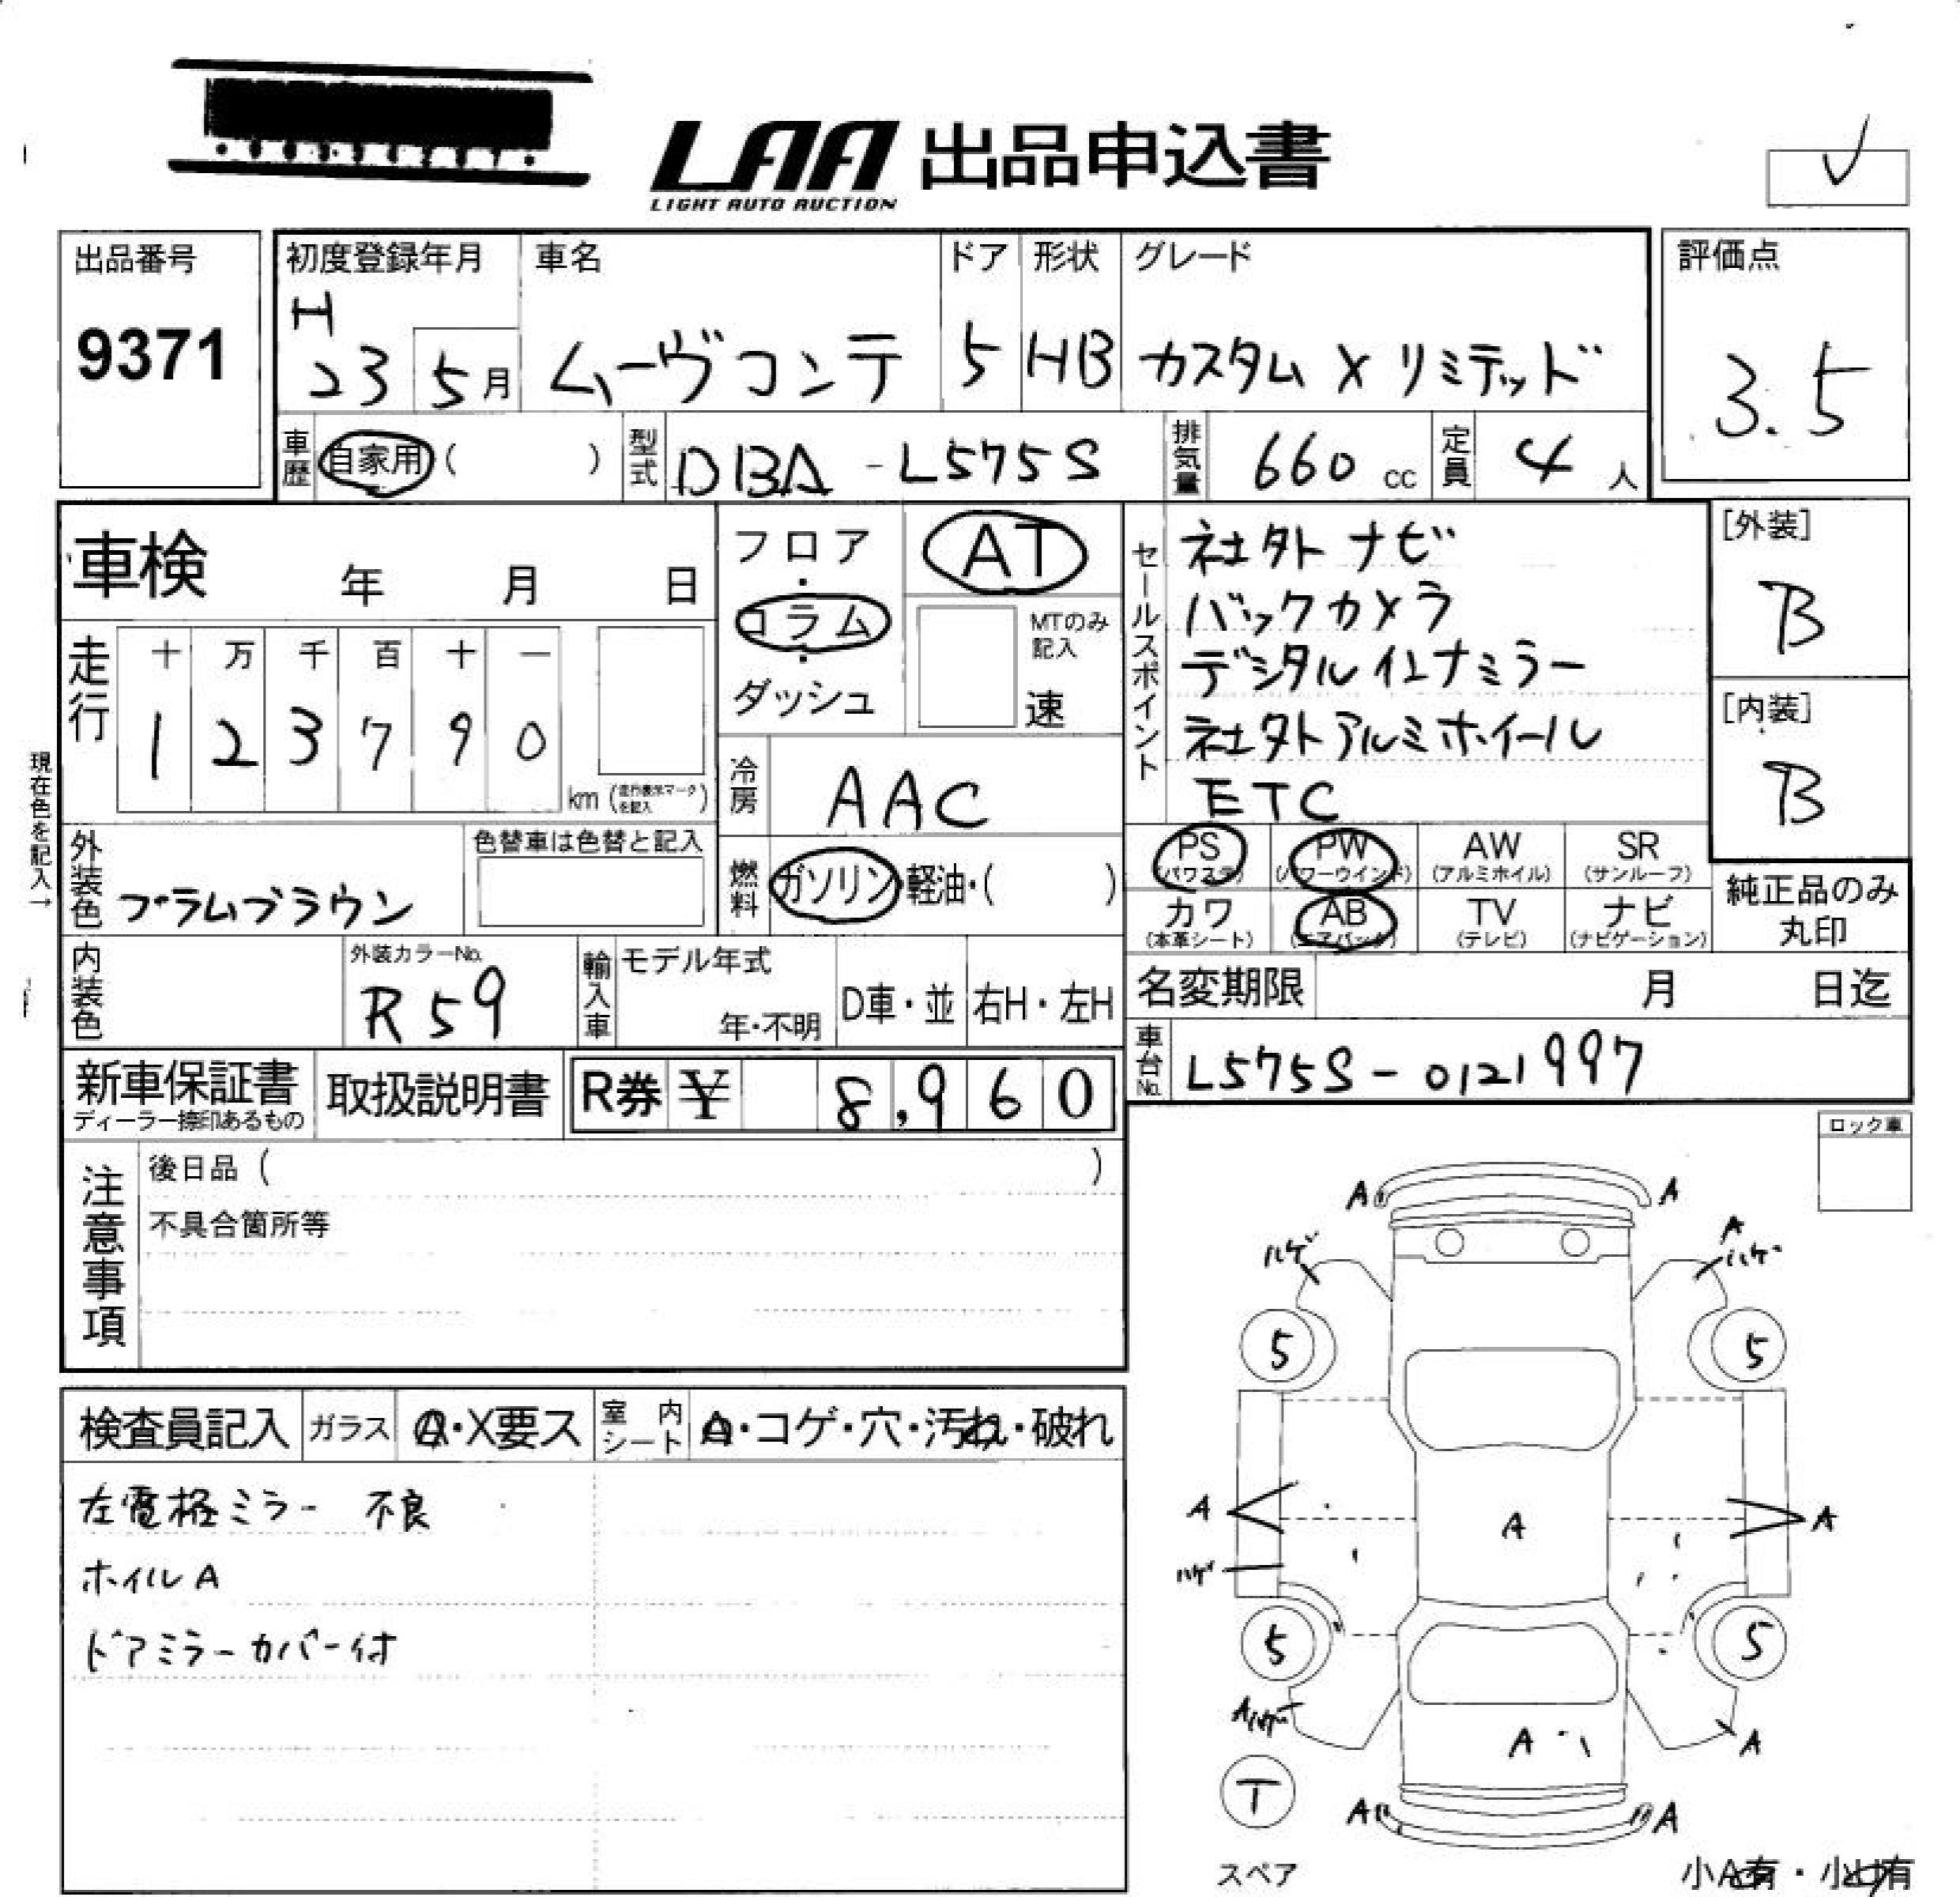 LAA 出品申込書
LIGHT AUTO AUCTION
出品番号
9371
初度登録年月
H
23 5月
車名
ムーヴコンテ
ドア
5
形状
HB
グレード
カスタム X リミテッド
評価点
3.5
車歴 自家用 ( )
型式 DBA-L575S
排気量 660 cc
定員 4 人
車検 年 月 日
フロア・コラム・ダッシュ
AT
MTのみ記入
速
セールスポイント
社外ナビ
バックカメラ
デジタルインナミラー
社外アルミホイール
ETC
[外装]
B
[内装]
B
走行
十 万 千 百 十 一
1 2 3 7 9 0
km (走行表示マークを記入)
現在色を記入→
冷房 AAC
外装色 プラムブラウン
色替車は色替と記入
燃料 ガソリン・軽油・( )
PS (パワステ)
PW (パワーウインド)
AW (アルミホイル)
SR (サンルーフ)
カワ (本革シート)
AB (エアバック)
TV (テレビ)
ナビ (ナビゲーション)
純正品のみ
丸印
内装色
外装カラーNo.
R59
輸入車
モデル年式
年・不明
D車・並
右H・左H
名変期限 月 日迄
車台No. L575S-0121997
新車保証書
ディーラー捺印あるもの
取扱説明書
R券 ¥ 8,960
注意事項
後日品 ( )
不具合箇所等
ロック車
検査員記入
ガラス A・X要ス
室内シート A・コゲ・穴・汚れ・破れ
左電格ミラー 不良
ホイルA
ドアミラーカバー付
A A
ハゲ
A
ハゲ
5 5
A A A
ハゲ
5 5
Aハゲ
A A
T
A A
スペア
小A有・小U有